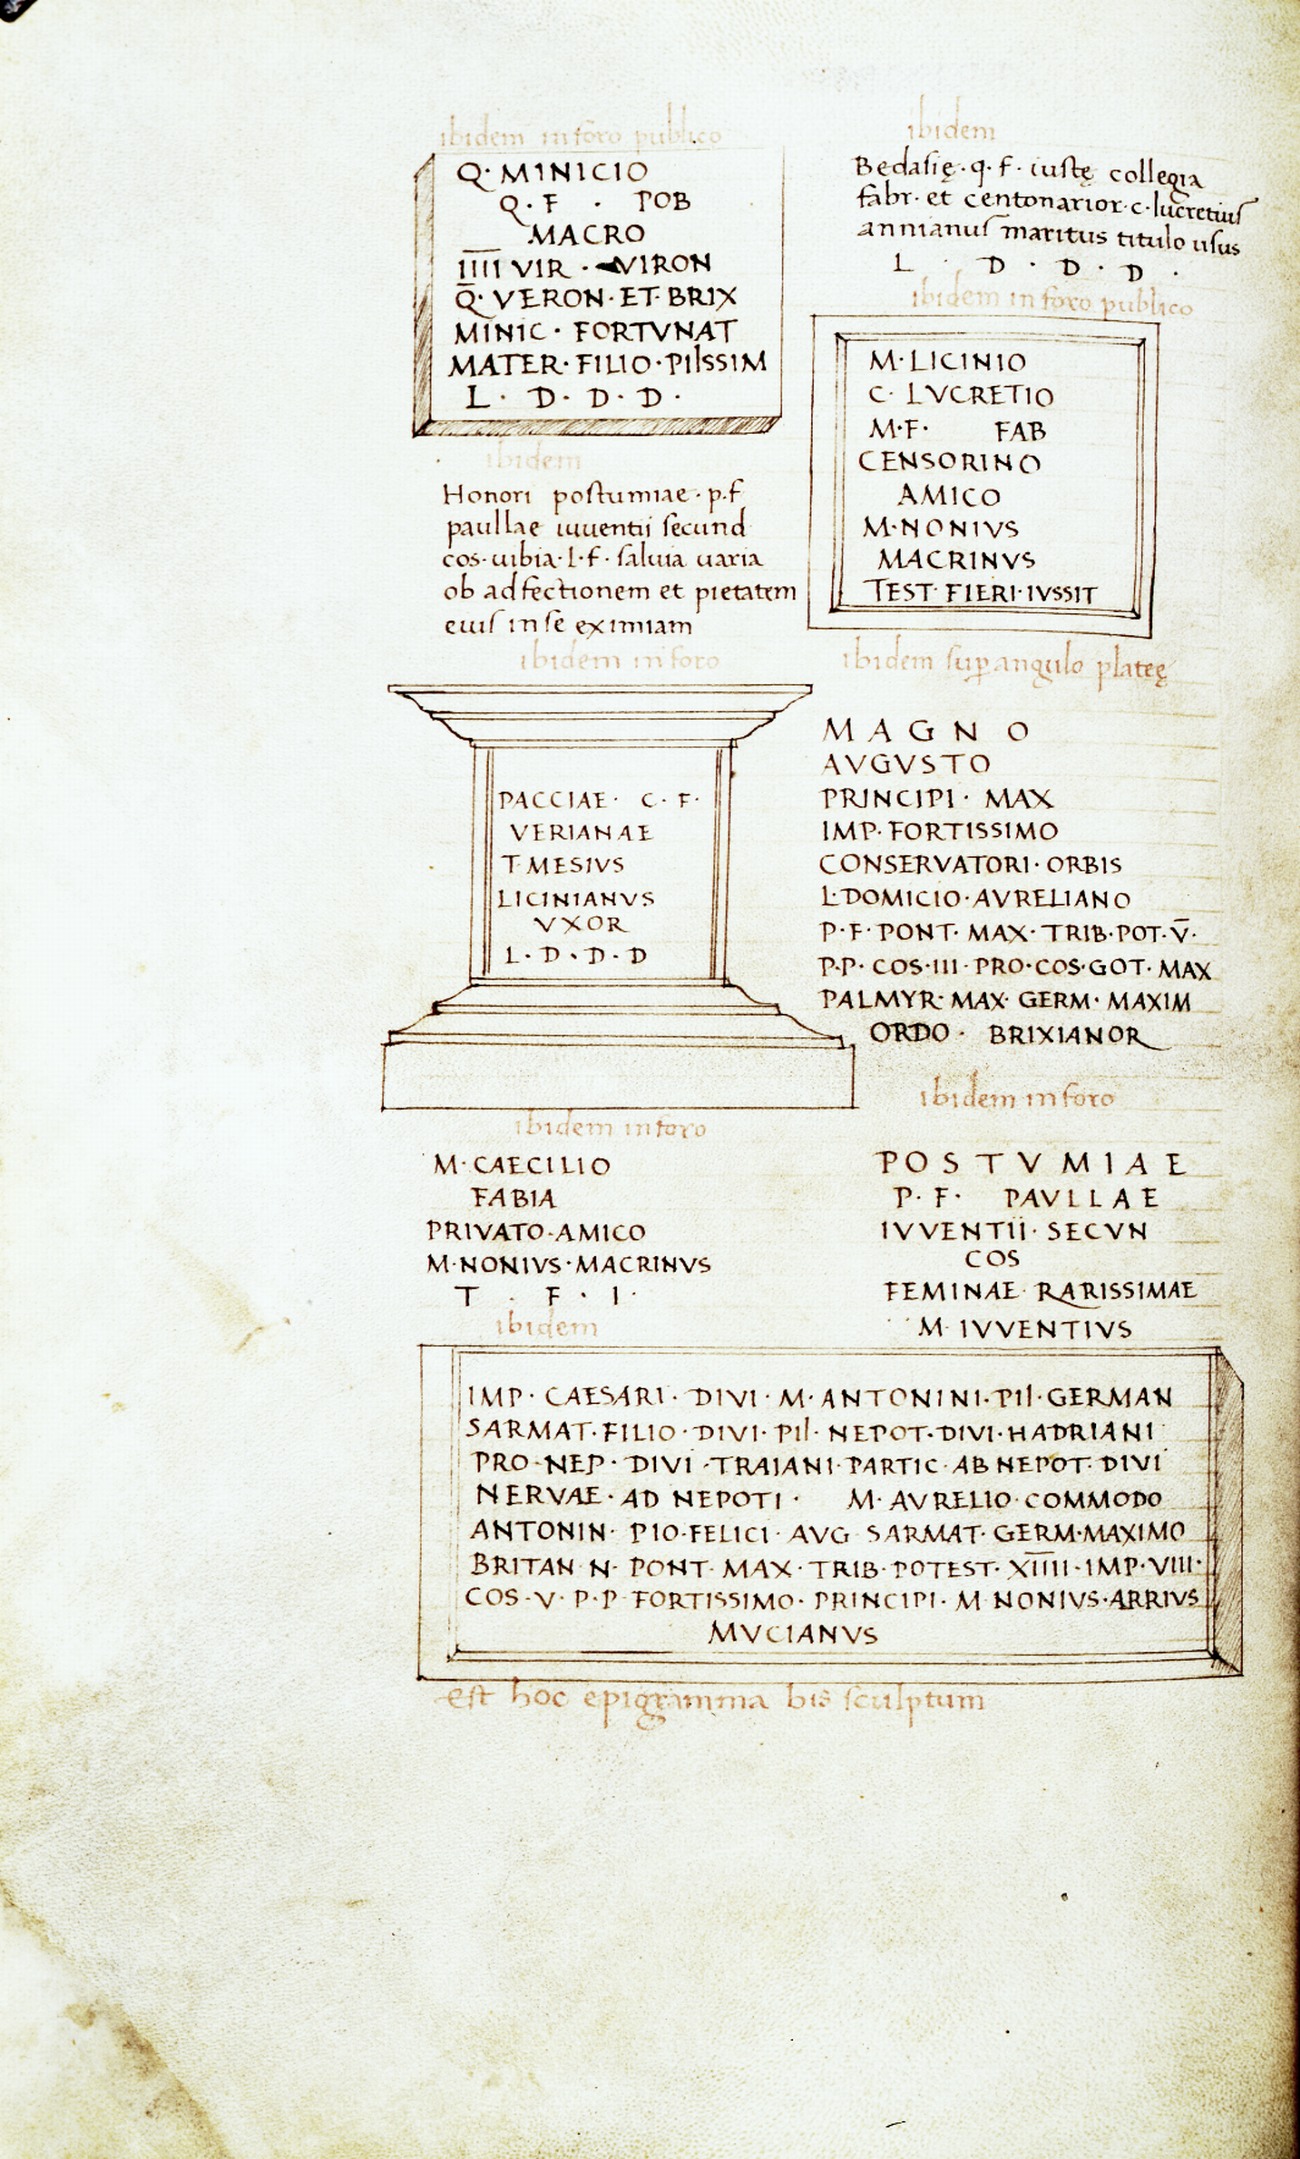 ibidem in foro publico
Q· MINICIO
Q · F · POB
MACRO
IIII VIR · VIRON
Q· VERON · ET· BRIX
MINIC · FORTVNAT
MATER · FILIO · PIISSIM
L · D · D · D ·
ibidem
Honori postumiae · p.f
paullae iuuentii secund
cos· uibia· l· f· saluia uaria
ob adfectionem et pietatem
eius in se eximiam
ibidem in foro
PACCIAE · C · F ·
VERIANAE
T· MESIVS
LICINIANVS
VXOR
L · D · D · D
ibidem in foro
M· CAECILIO
FABIA
PRIVATO · AMICO
M· NONIVS · MACRINVS
T · F · I ·
ibidem
Bedasię · q· f · iustę collegia
fabr· et centonarior· c· lucretius
annianus maritus titulo usus
L · D · D · D ·
ibidem in foro publico
M· LICINIO
C· LVCRETIO
M· F · FAB
CENSORINO
AMICO
M· NONIVS
MACRINVS
TEST· FIERI· IVSSIT
ibidem sup angulo plateę
MAGNO
AVGVSTO
PRINCIPI · MAX
IMP· FORTISSIMO
CONSERVATORI · ORBIS
L· DOMICIO · AVRELIANO
P · F · PONT· MAX · TRIB· POT· V̅ ·
P·P· COS· III · PRO·COS· GOT· MAX
PALMYR· MAX· GERM· MAXIM
ORDO · BRIXIANOR
ibidem in foro
POSTVMIAE
P · F · PAVLLAE
IVVENTII · SECVN
COS
FEMINAE RARISSIMAE
M· IVVENTIVS
IMP · CAESARI · DIVI · M· ANTONINI· PII· GERMAN
SARMAT· FILIO · DIVI · PII· NEPOT· DIVI· HADRIANI
PRO-NEP · DIVI · TRAIANI· PARTIC · AB NEPOT· DIVI
NERVAE · AD NEPOTI · M· AVRELIO· COMMODO
ANTONIN· PIO· FELICI · AVG SARMAT· GERM· MAXIMO
BRITAN N· PONT· MAX· TRIB· POTEST· XIIII · IMP· VIII·
COS · V · P·P FORTISSIMO · PRINCIPI · M NONIVS· ARRIVS
MVCIANVS
est hoc epigramma bis sculptum